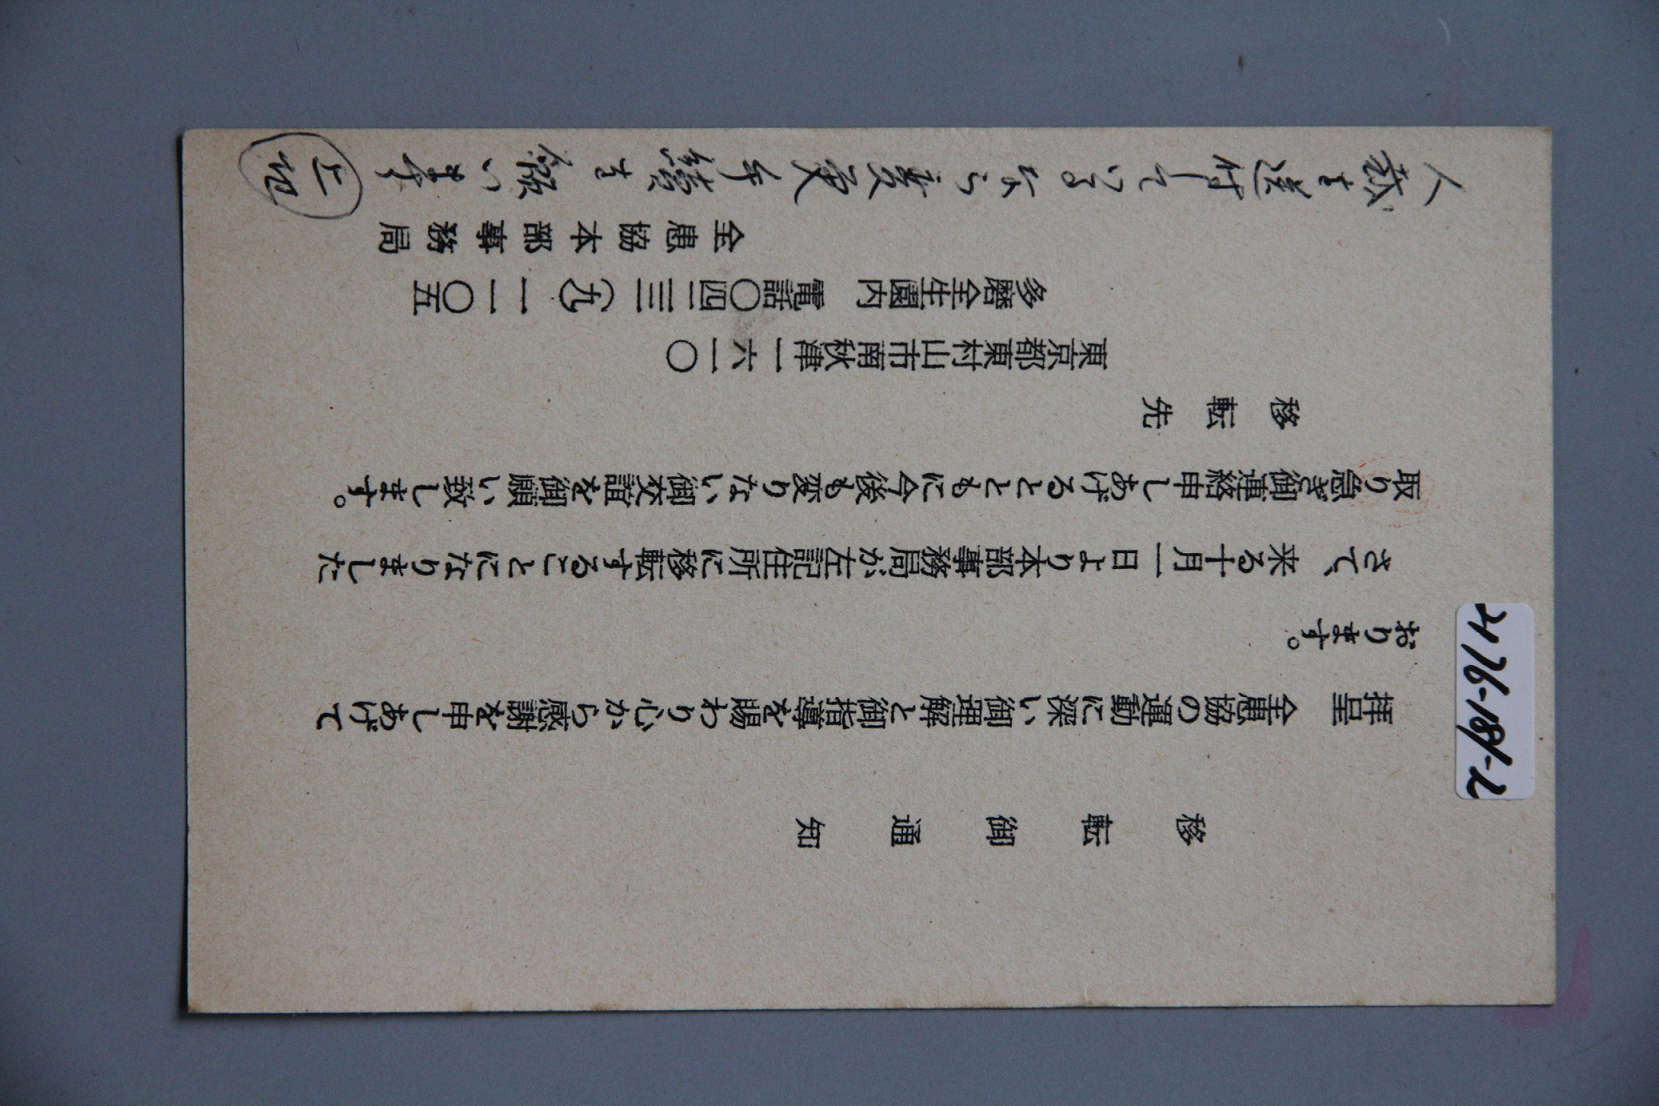 移転御通知
拝呈 全患協の運動に深い御理解と御指導を賜わり心から感謝を申しあげて
おります。
さて、来る十月一日より本部事務局が左記住所に移転することになりました
取り急ぎ御連絡申しあげるとともに今後も変りない御交誼を御願い致します。
移転先
東京都東村山市南秋津一六一〇
多磨全生園内 電話〇四二三(九)一一〇五
全患協本部事務局
送付しているなら変更手続を願います
2176-181-2